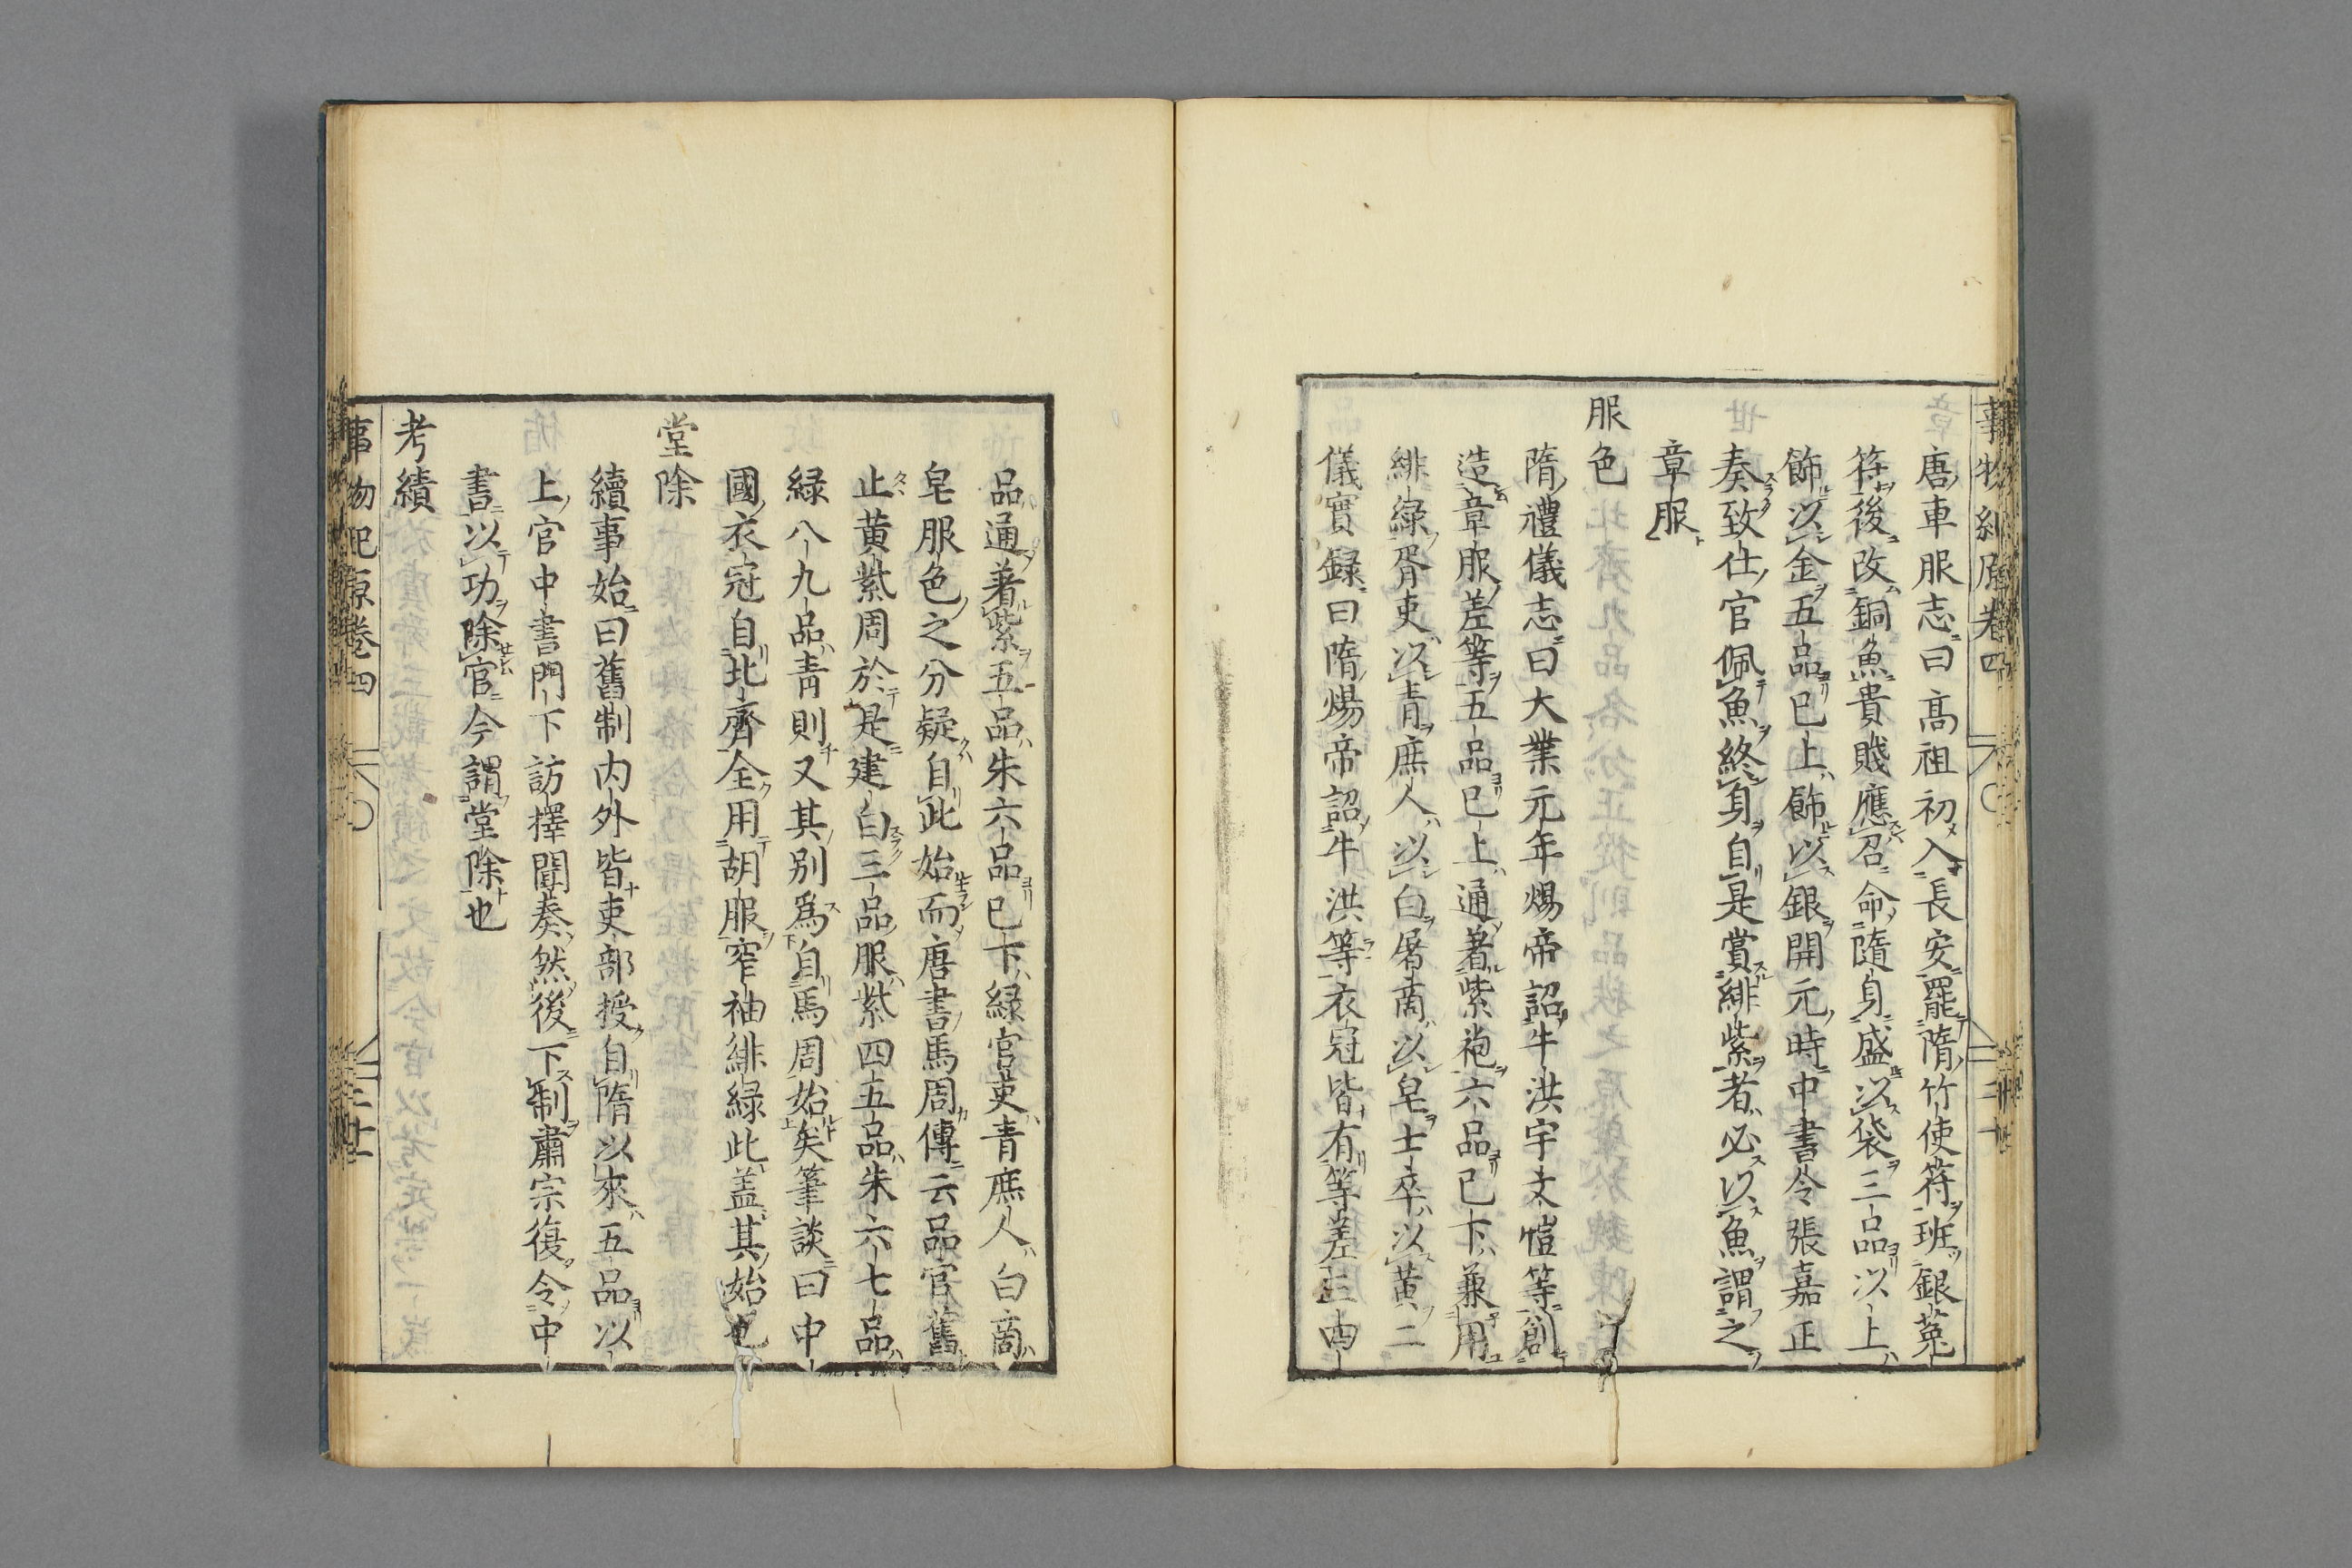 唐車服志曰高祖初入長安罷隋竹使符班銀菟
符後改銅魚貴賤應召命隨身盛以袋三品以上
飾以金五品已上飾以銀開元時中書令張嘉正
奏致仕官佩魚終身自是賞緋紫者必以魚謂之
章服
服色
隋禮儀志曰大業元年煬帝詔牛洪宇文愷等創
造章服差等五品已上通著紫袍六品已下兼用
緋綠胥吏以青庶人以白屠商以皂士卒以黃二
儀實録曰隋煬帝詔牛洪等衣冠皆有等差三四
品通著紫五品朱六品已下綠官吏青庶人白商
皂服色之分疑自此始而唐書馬周傳云品官舊
止黃紫周於是建白三品服紫四五品朱六七品
緑八九品青則又其别爲自馬周始矣筆談曰中
國衣冠自北齊全用胡服窄袖緋緑此盖其始也
堂除
續事始曰舊制内外皆吏部授自隋以來五品以
上官中書門下訪擇聞奏然後下制肅宗復令中
書以功除官今謂堂除也
考績
事物紀原卷四